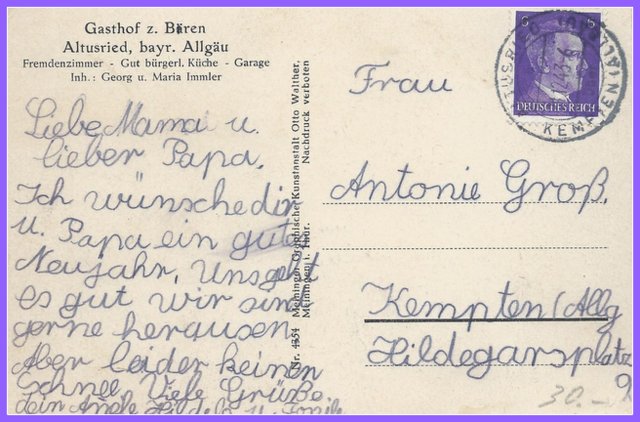 Gasthof z. Bären
Altusried, bayr. Allgäu
Fremdenzimmer - Gut bürgerl. Küche - Garage
Inh.: Georg u. Maria Immler
Liebe Mama u.
lieber Papa.
Ich wünsche dir
u. Papa ein gutes
Neujahr, Uns geht
es gut wir sind
gerne herausen.
Aber leider keinen
Schnee Viele Grüße
dein
Nr. 4354 Meininger Graphischer Kunstanstalt Otto Walther,
Meiningen i. Thür. Nachdruck verboten
6 6
DEUTSCHES REICH
ALTUSRIED
KEMPTEN (ALLGÄU) LAND
Frau
Antonie Groß.
Kempten (Allg
Hildegarsplatz
9
30.-